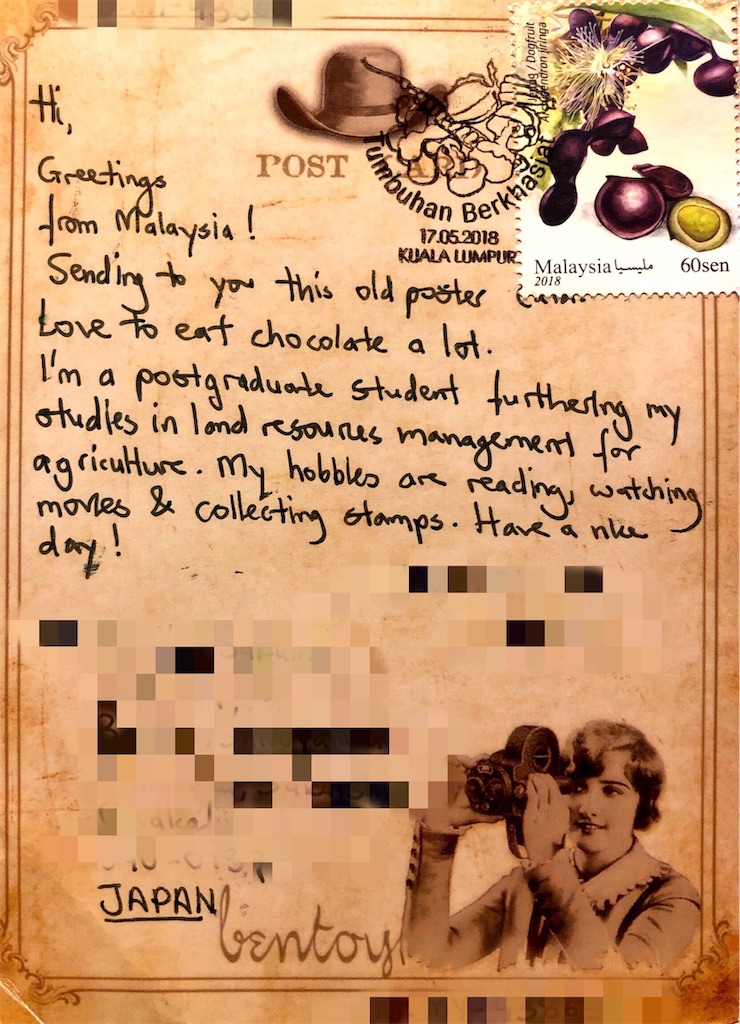 Hi,
POST
Greetings
from Malaysia!
Sending to you this old poster
Love to eat chocolate a lot.
I'm a postgraduate student furthering my
studies in land resources management for
agriculture. My hobbies are reading, watching
movies & collecting stamps. Have a nice
day!
Tumbuhan Berkhasiat
17.05.2018
KUALA LUMPUR
/ Dogfruit
Malaysia مليسيا 60sen
2018
JAPAN
bentoy